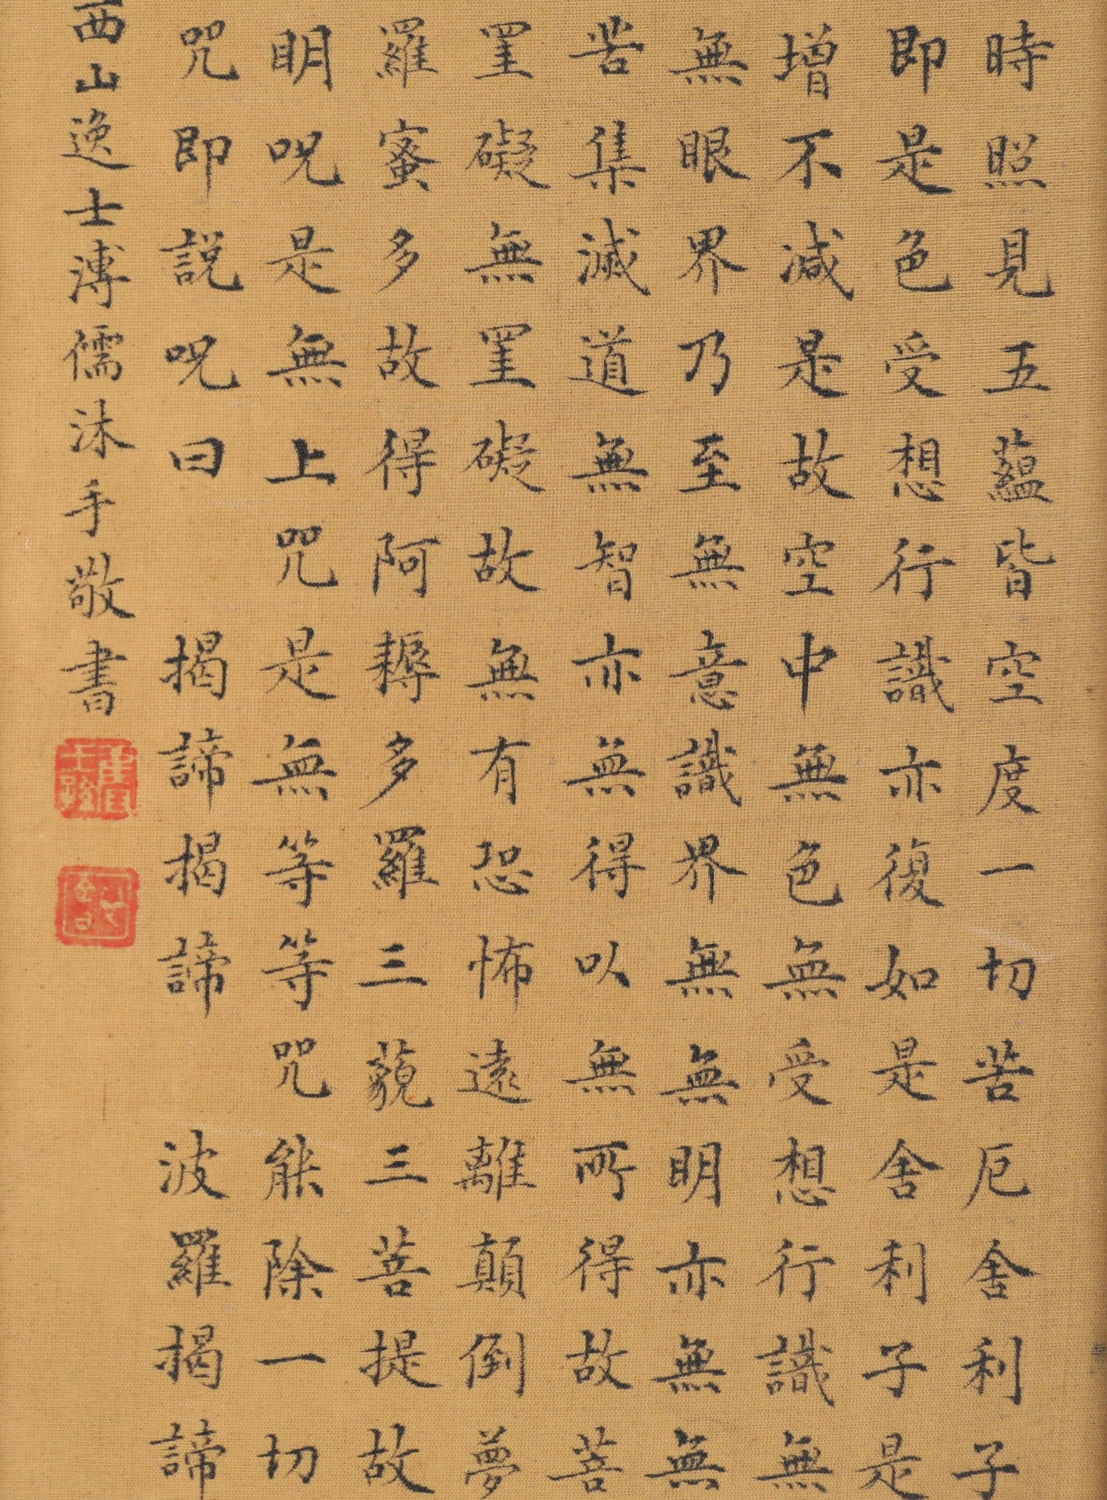 時照見五蘊皆空度一切苦厄舍利子
即是色受想行識亦復如是舍利子是
增不減是故空中無色無受想行識無
無眼界乃至無意識界無無明亦無無
苦集滅道無智亦無得以無所得故菩
罣礙無罣礙故無有恐怖遠離顛倒夢
羅蜜多故得阿耨多羅三藐三菩提故
明呪是無上咒是無等等咒能除一切
咒即說呪曰 揭諦揭諦 波羅揭諦
西山逸士溥儒沐手敬書